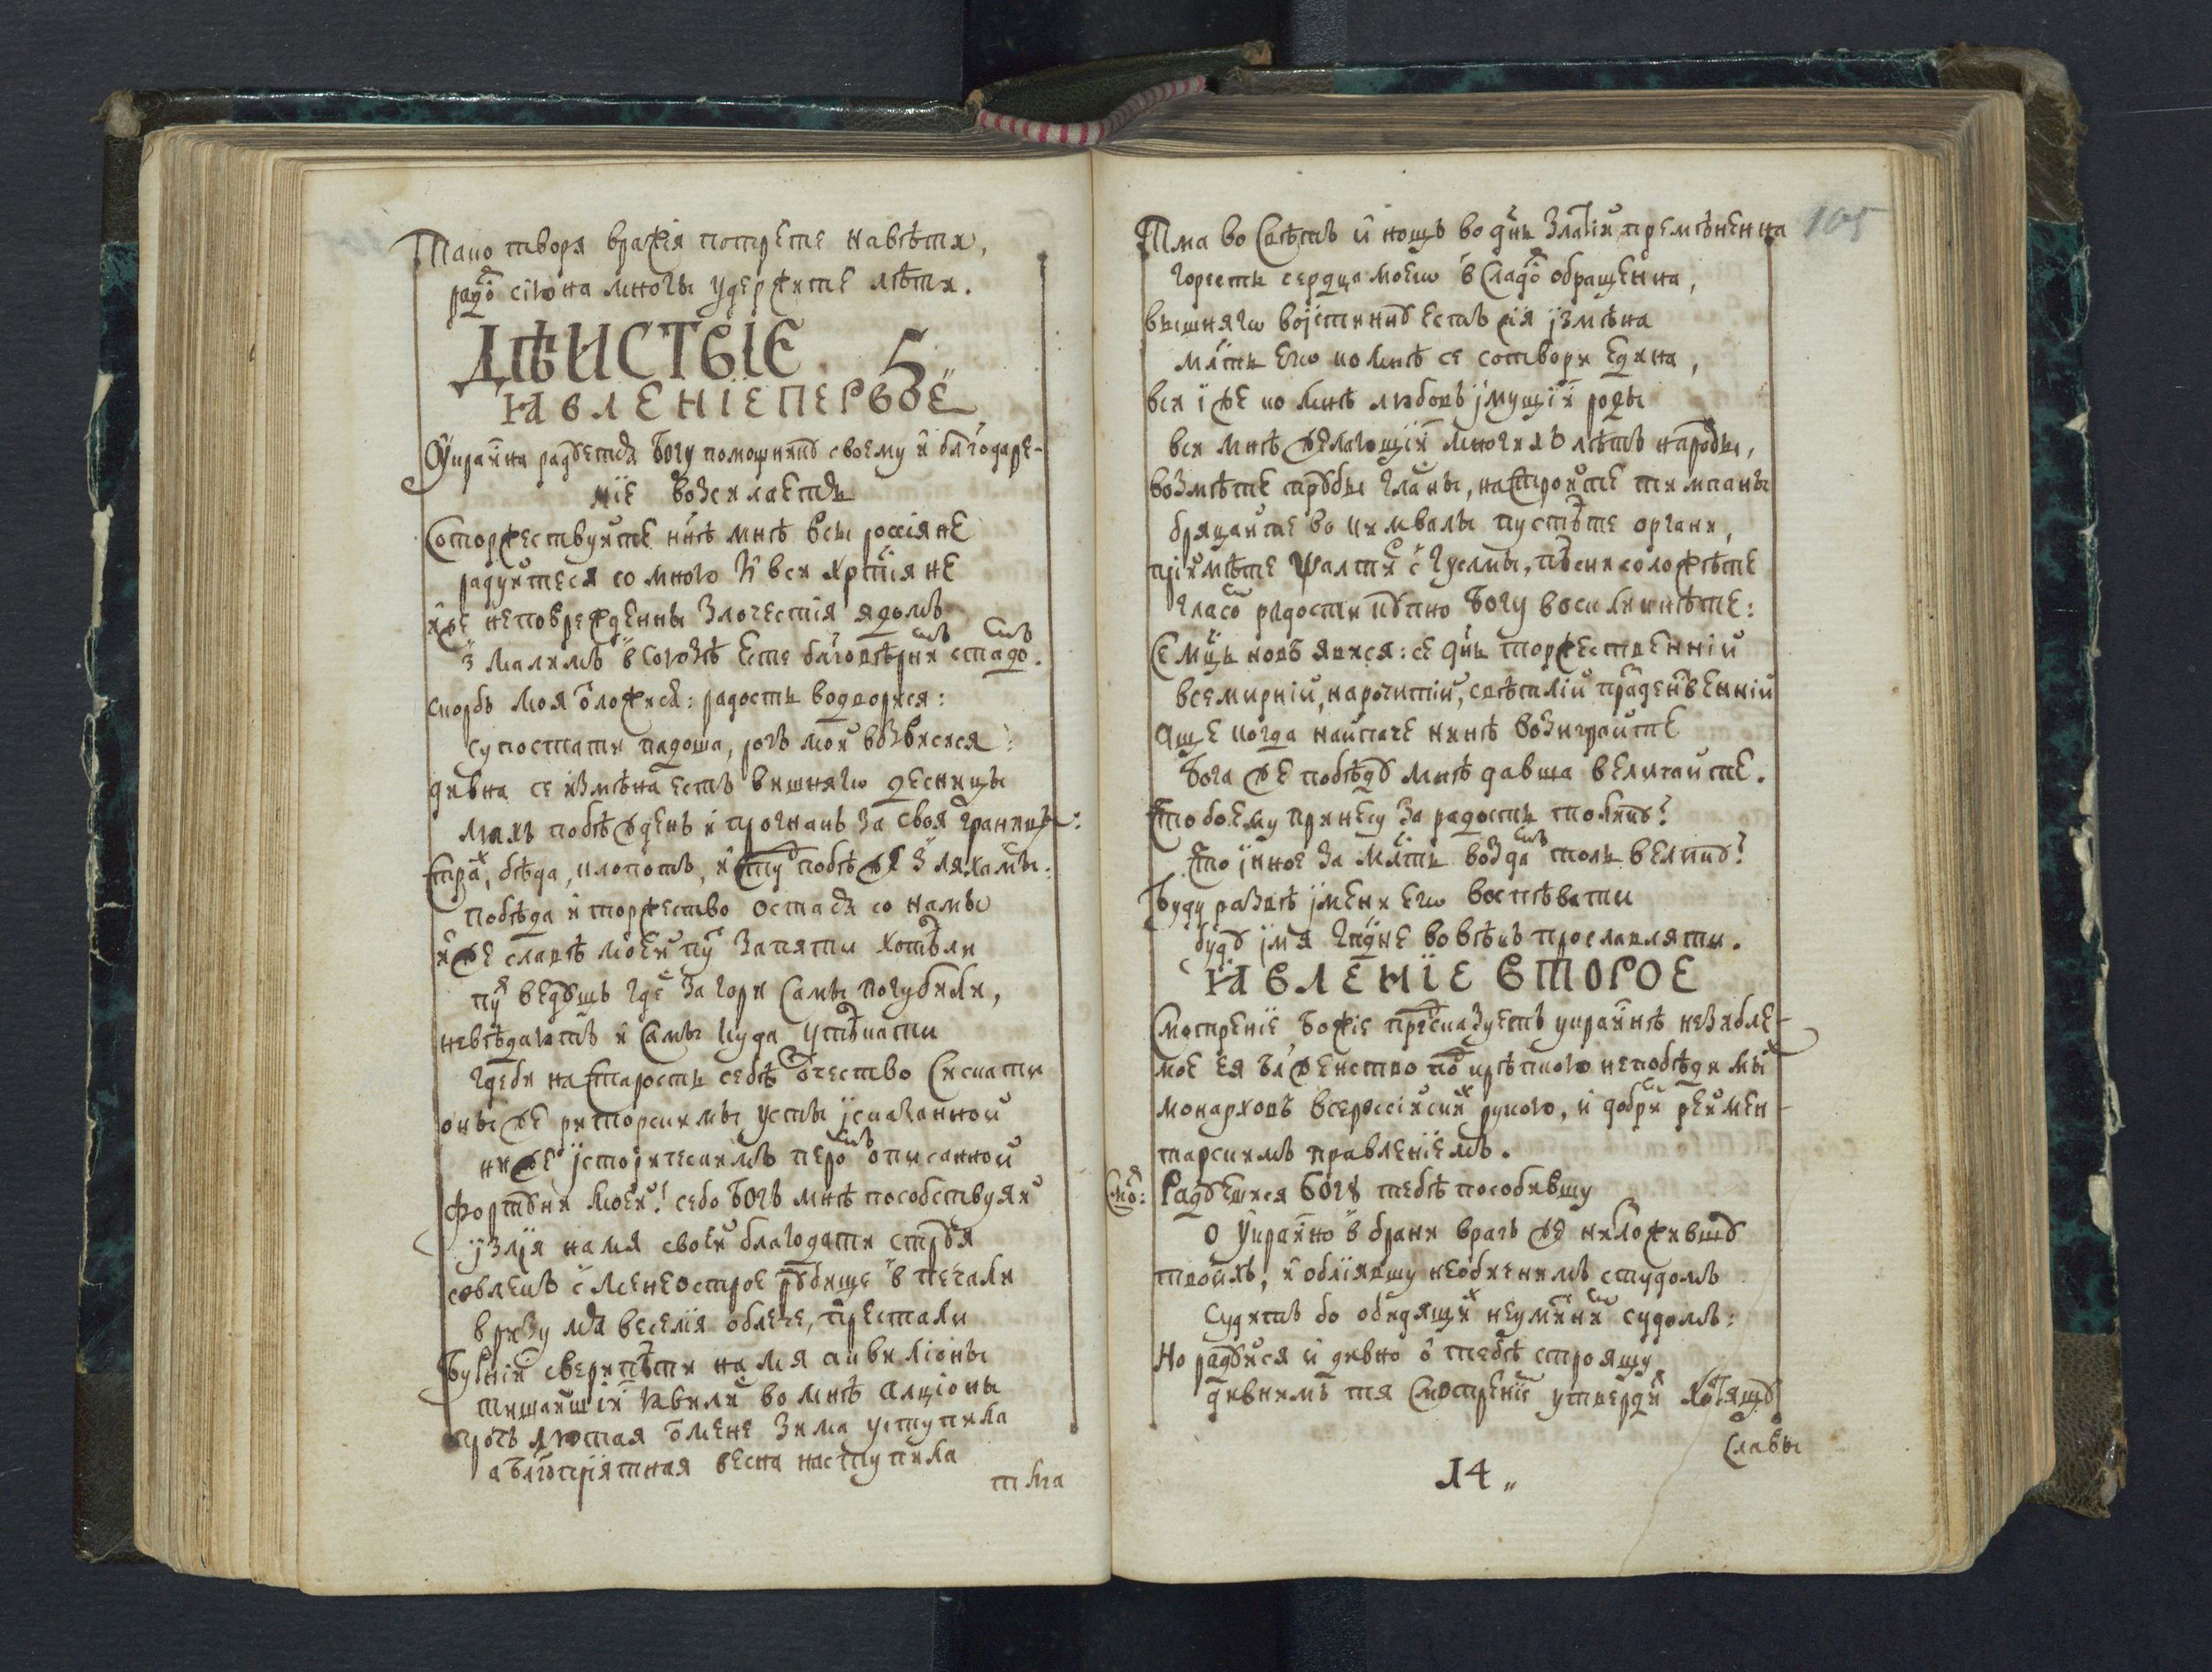 Тако творя вражія потрете навѣти,
радо сіюна многы удержите лѣти.
ДѢИСТВІЕ 5
ꙖВЛЕНІЕ ПЕРВОЕ
Украйна радуется Богу помощнику своему и благодаре-
ніе возсилаетъ
Сторжествуйте ннѣ мнѣ всы россіяне
радуйтеся со мною и вси хрстіяне
иже неповрежденны злочестія ядомъ
з малимъ в союзѣ есте благовѣрни стадо.
скорбь моя ѿложися: радость водворися:
супостати падоша, рогъ мой возвисися:
дивна се измѣна естъ вишнягѡ десницы
ляхъ побѣжденъ и прогнанъ за своя границы:
страх, бѣда, клопотъ, и студ побѣже з ляхамы:
побѣда и торжество остася со намы
иже славѣ моей пут запяти хотѣли
путь ведущъ где за гори самы погубили,
невѣдаютъ и самы куда утѣкати
гдеби на старость себѣ отечество сискати
оны же риторскимы усты ускаганной
ниже історическимъ перомъ описанной
фортуни моей! себо Богъ мнѣ пособствуяй
ізлія на мя своей благодати струя
совлекъ с мене острое рубище в печали
в ризу мя веселія облече, престали
Буйніи сверипѣти на мя аквиліоны
тишайшіи ꙗвили во мнѣ алціоны
прочь лютая ѿ мене зима уступила
а благопріятная весна наступила
тма
105
Тма во свѣтъ и нощъ во днь златій премѣненна
горесть сердца моегѡ в сладо обращенна,
вышнягѡ воістинну естъ сія ізмѣна
млсть егѡ ко мнѣ се сотвори едина,
вси іже ко мнѣ любовъ імущіи роды
вси мнѣ желающіи многихъ лѣтъ народы,
возмѣте трубы гласны, настройте тимпаны
бряцайте во кимвалы пустѣте органи,
пріймѣте псалтир с гуслмы, пѣсни соложѣте
гласом радости купно Богу воскликнѣте:
Се мсцъ новъ явися: се днь торжественній
всемирній, нарочитій, свѣтлій празденственній
Аще когда найпаче нинѣ возиграйте
Бога же побѣду мнѣ давша величайте.
Что боему принесу за радость толику?
Что инное за млсть воздамъ толь велику?
Буду развѣ імени егѡ воспѣвати
буду імя гсдне во вѣкъ прославляти.
ꙖВЛЕНІЕ ВТОРОЕ
Смотреніе Божіе предсказуетъ украйнѣ незибле-
мое ея блженство под крѣпкою непобѣдимы
монарховъ всероссійских рукою, и добрим реймен-
тарскимъ правленіемъ.
Смо: Радуешися Богу тебѣ пособившу
О Украйно в брани врагъ же низложившу
твоихъ, и обліявшу необичнимъ студомъ
судитъ бо обидящих неумитнимъ судомъ:
Но радуйся и дивно о тебѣ строящу
дивнимъ тя смотреніем утвердит хотящу
славы
14